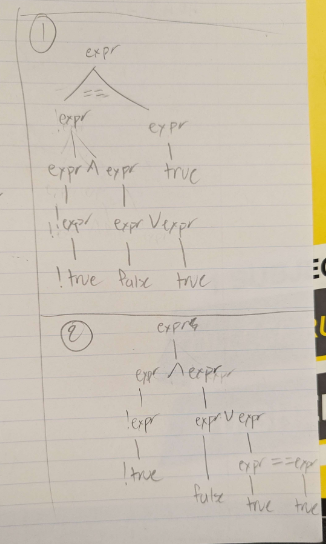 1
expr
==
expr expr
expr ∧ expr true
!expr expr ∨ expr
!true false true
2
expr
expr ∧ expr
!expr expr ∨ expr
!true expr == expr
false true true